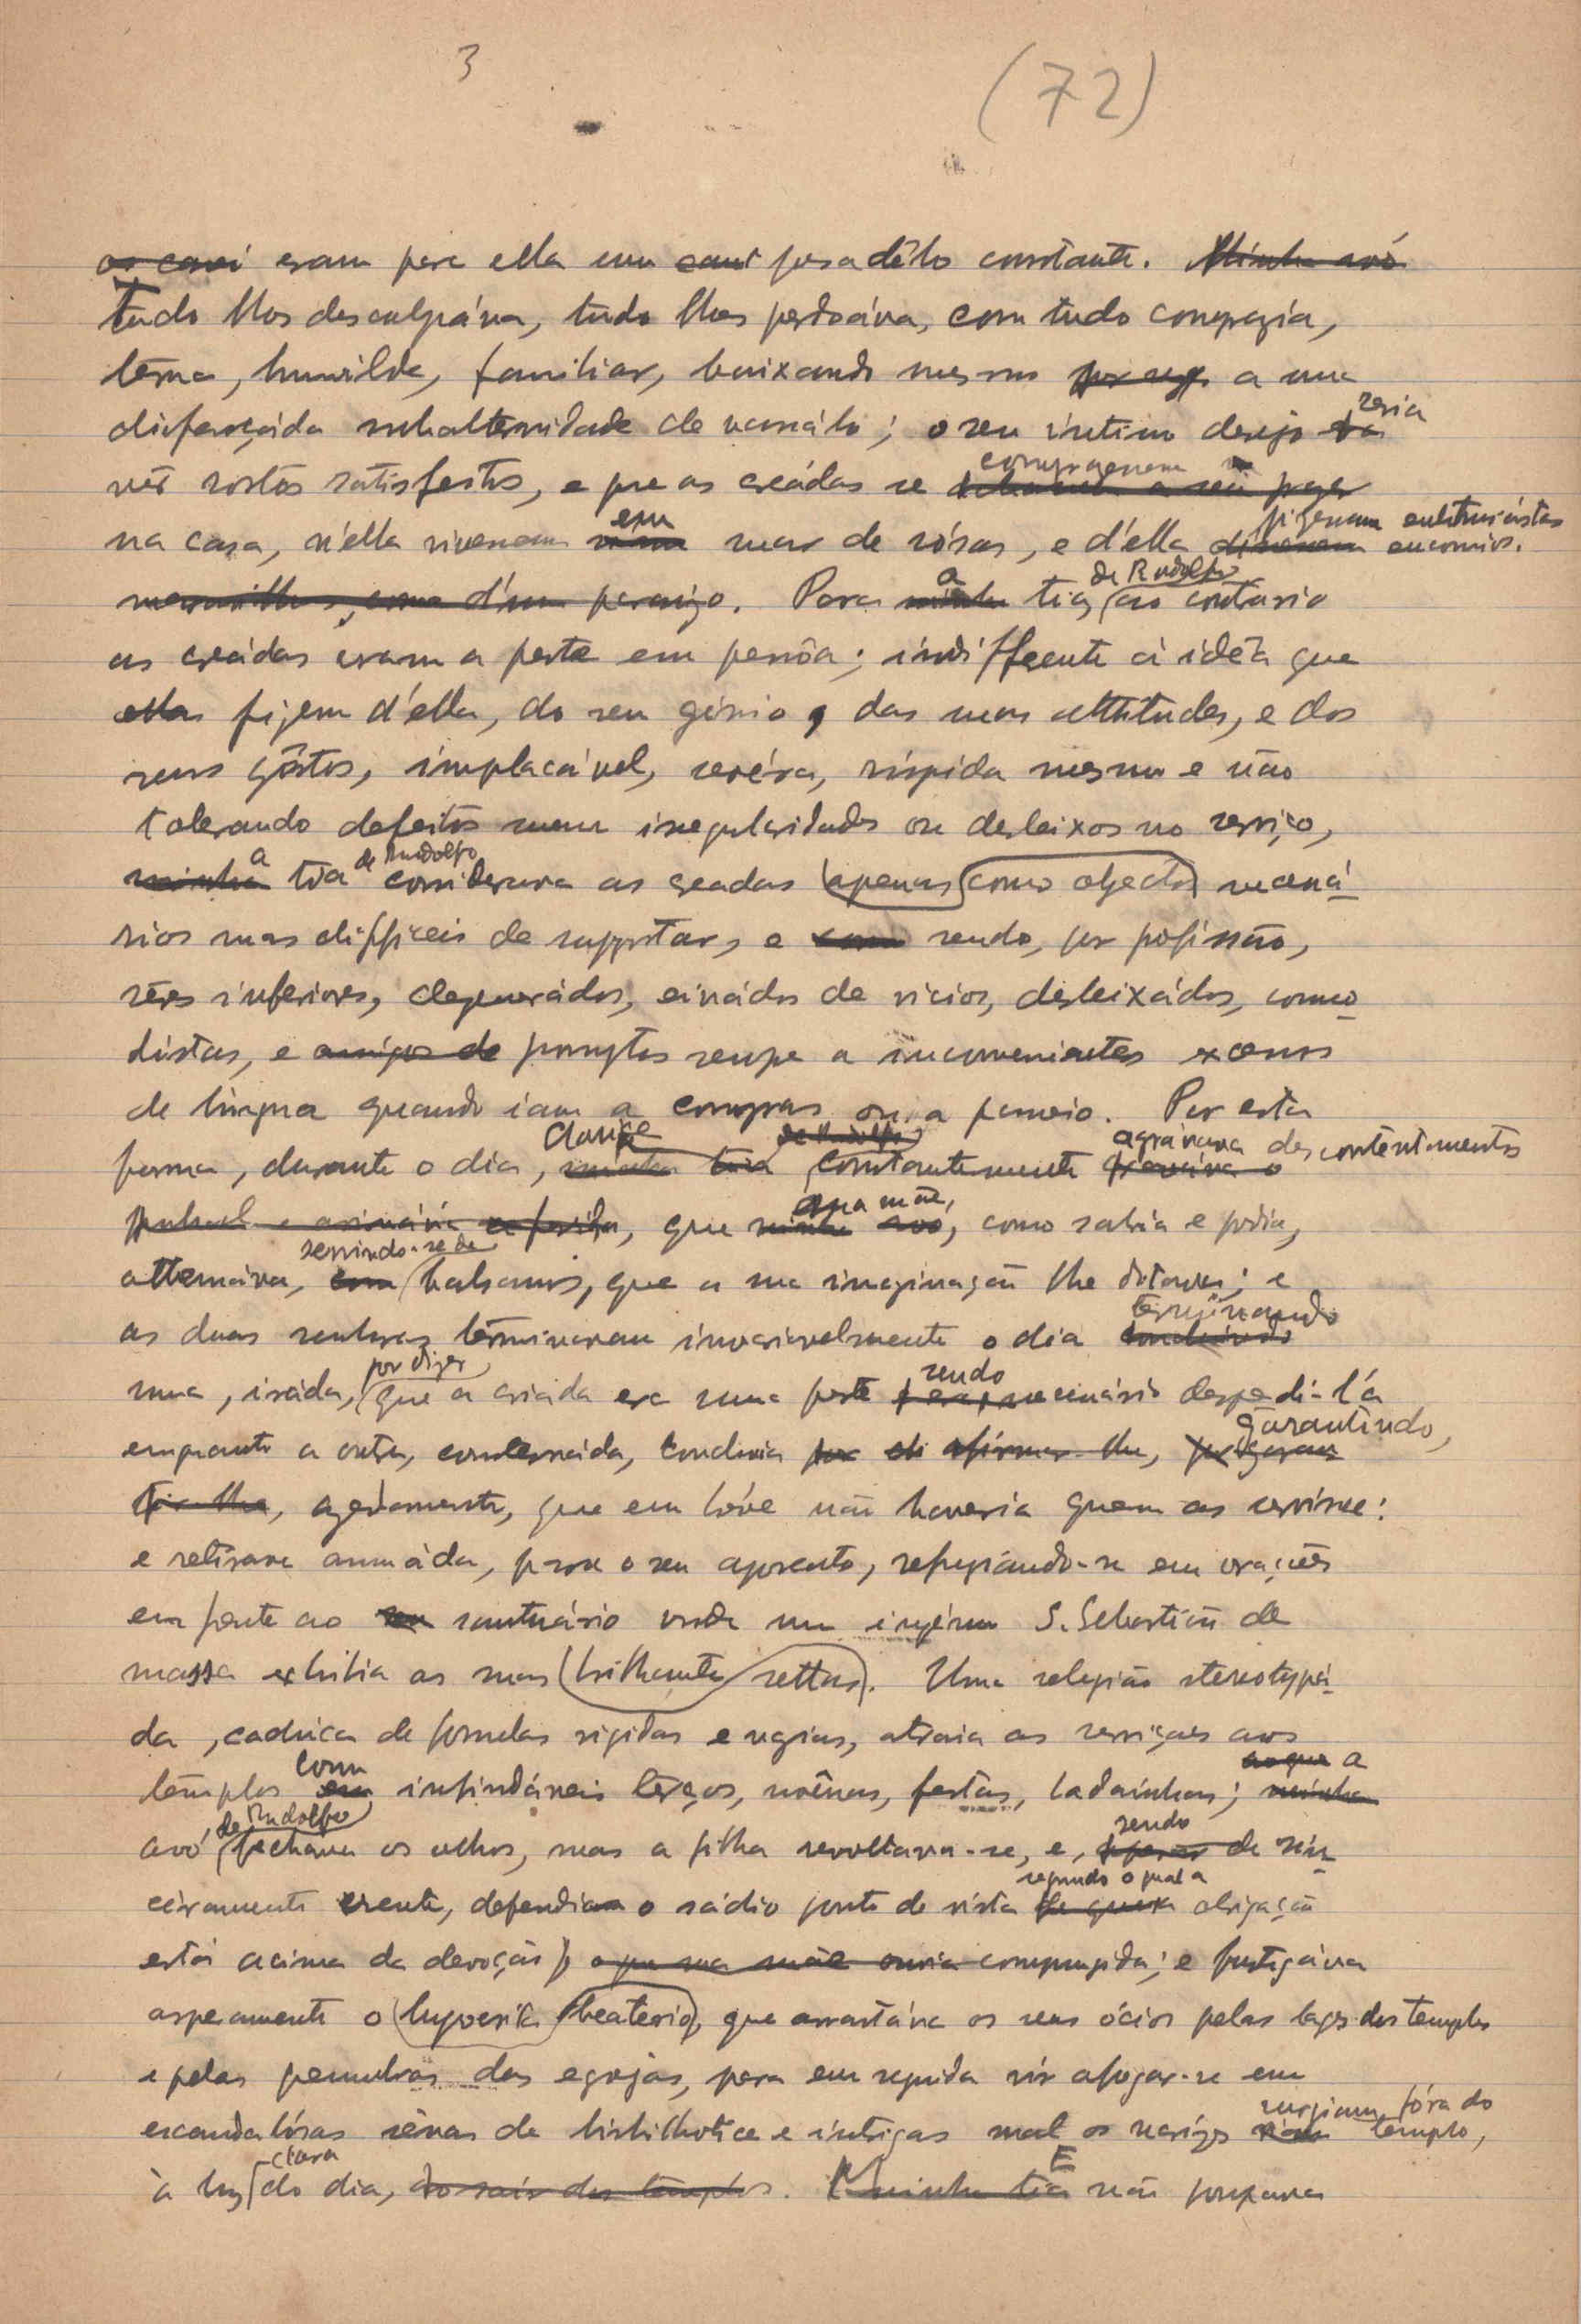 3
(72)
eram para ella um pesadêlo constante. Minha avó
Tudo lhes desculpáva, tudo lhes perdoáva, com tudo comprazia,
terna, humilde, familiar, baixando mesmo a uma
disfarçáda subalternidade de vassálo; o seu intimo desejo seria
vêr rostos satisfeitos, e que as creádas se comprazessem
na casa, n'ella vivessem em mar de rósas, e d'ella fizessem enthusiástas encomios.
maravilhas, como d'um paraizo. Para a tia de Rudolfo ao contrario
as creádas eram a peste em pessôa; indifferente á idêa que
ellas fizem d'ella, do seu génio, das suas attitudes, e dos
seus gôstos, implacável, sevéra, rispida mesmo e não
tolerando defeitos nem irregularidades ou desleixos no serviço,
minha a tia de Rudolfo considerava as creadas apenas como objectos necessá-
rios mas difficeis de supportar, e sendo, por profissão,
sêres inferiores, degenerádos, eivádos de vicios, desleixádos, como-
distas, e amigos de promptos sempre a inconvenientes excessos
de lingua quando iam a compras ou a passeio. Por esta
forma, durante o dia, minha tia de Rudolfo constantemente agraváva descontentamentos
que sua mãe, como sabia e podia,
attenuáva, com servindo-se de balsamos, que a sua imaginação lhe ditava; e
as duas senhoras terminavam invariavelmente o dia terminando
uma, iráda, por dizer que a criada era uma peste sendo necessário despedi-l'a
emquanto a outra, consternáda, concluia garantindo,
azedamente, que em bréve não haveria quem as servisse:
e retirava amuáda, para o seu aposento, refugiando-se em orações
em frente ao seu santuário onde um ingénuo S. Sebastião de
massa exhibia as suas brilhantes settas. Uma religião stereotypá-
da, caduca de formulas rigidas e vazias, atraia as serviçaes aos
templos com infindáveis têrços, novênas, festas, ladainhas; a
avó de Rudolfo fechava os olhos, mas a filha revoltava-se, e, sendo de sin-
ceiramente crente, defendia o sádio ponto de vista segundo o qual a obrigação
está acima da devoção, o que sua mãe ouvia compungida; e fustigáva
asperamente o hypocrita beaterio, que arrastáva os seus ócios pelas lages dos templos
e pelas penumbras das egrejas, para em seguida vir afogar-se em
escandalósas scênas de bisbilhotice e intrigas mal os narizes surgiam fóra do templo,
à luz clara do dia, ao sair dos templos. E minha tia não poupava